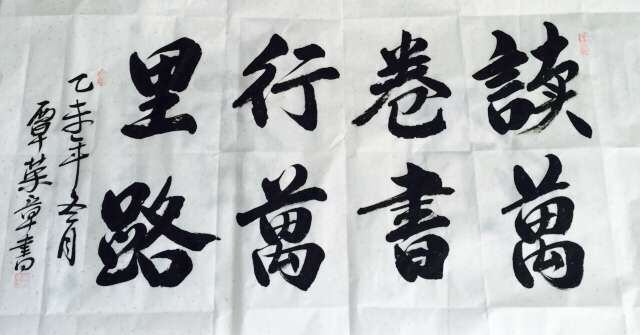 讀萬
卷書
行萬
里路
乙未年冬月
覃菜章書